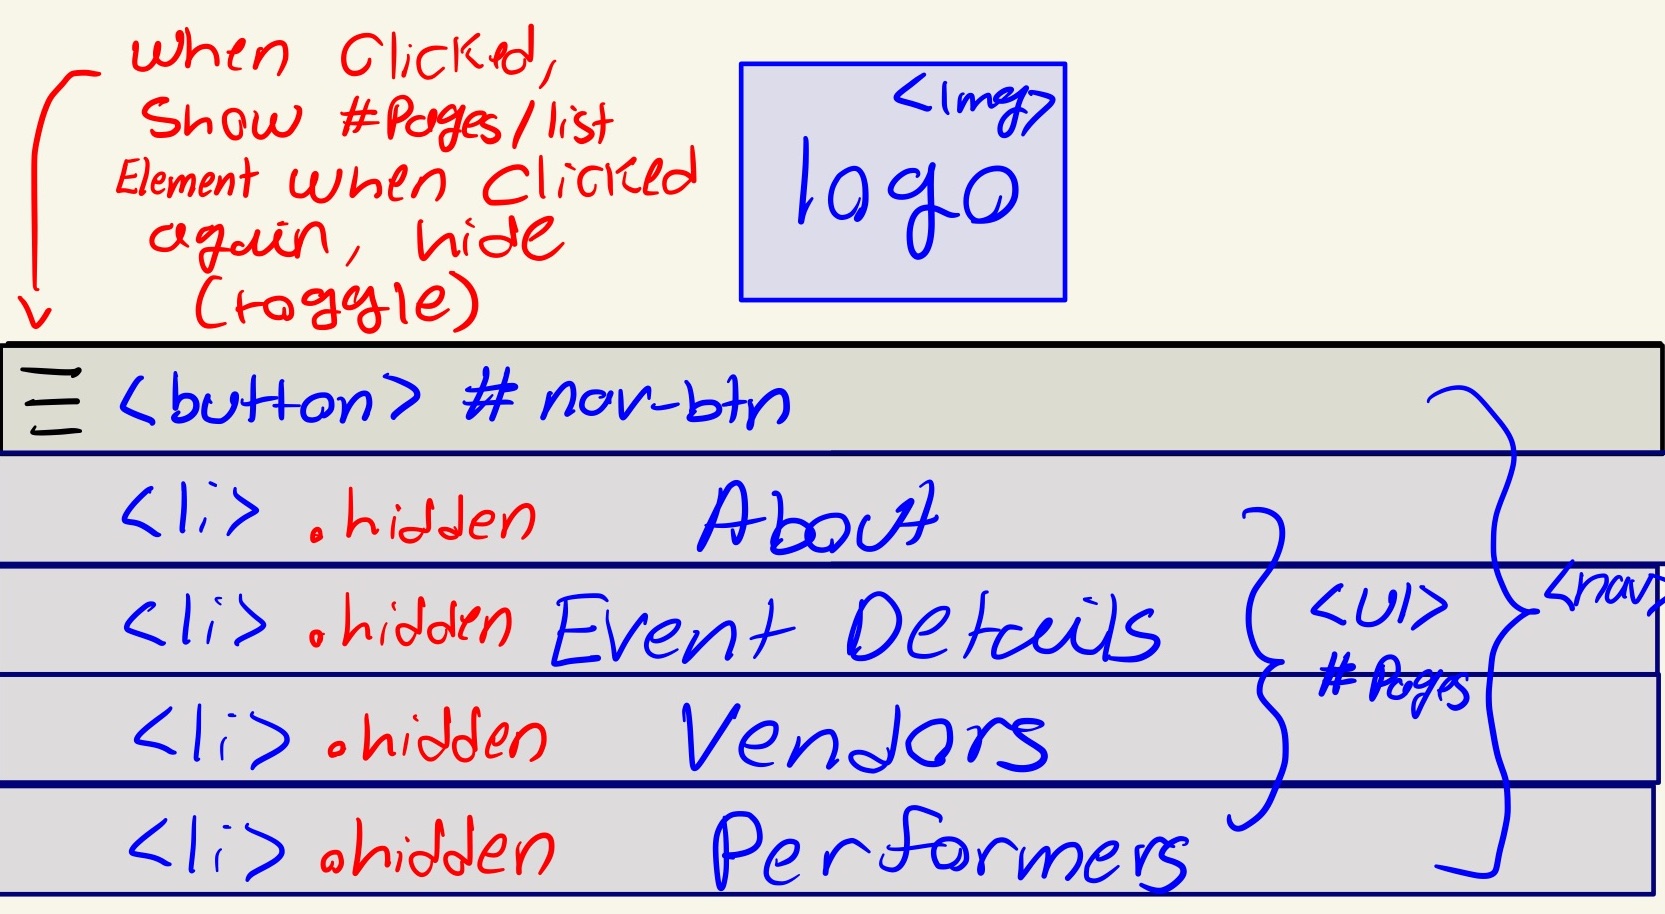 when Clicked,
Show #Pages/list
Element when Clicked
again, hide
(toggle)
<img>
logo
<button> # nav-btn
<li> .hidden About
<li> .hidden Event Details
<li> .hidden Vendors
<li> .hidden Performers
<ul>
#Pages
<nav>